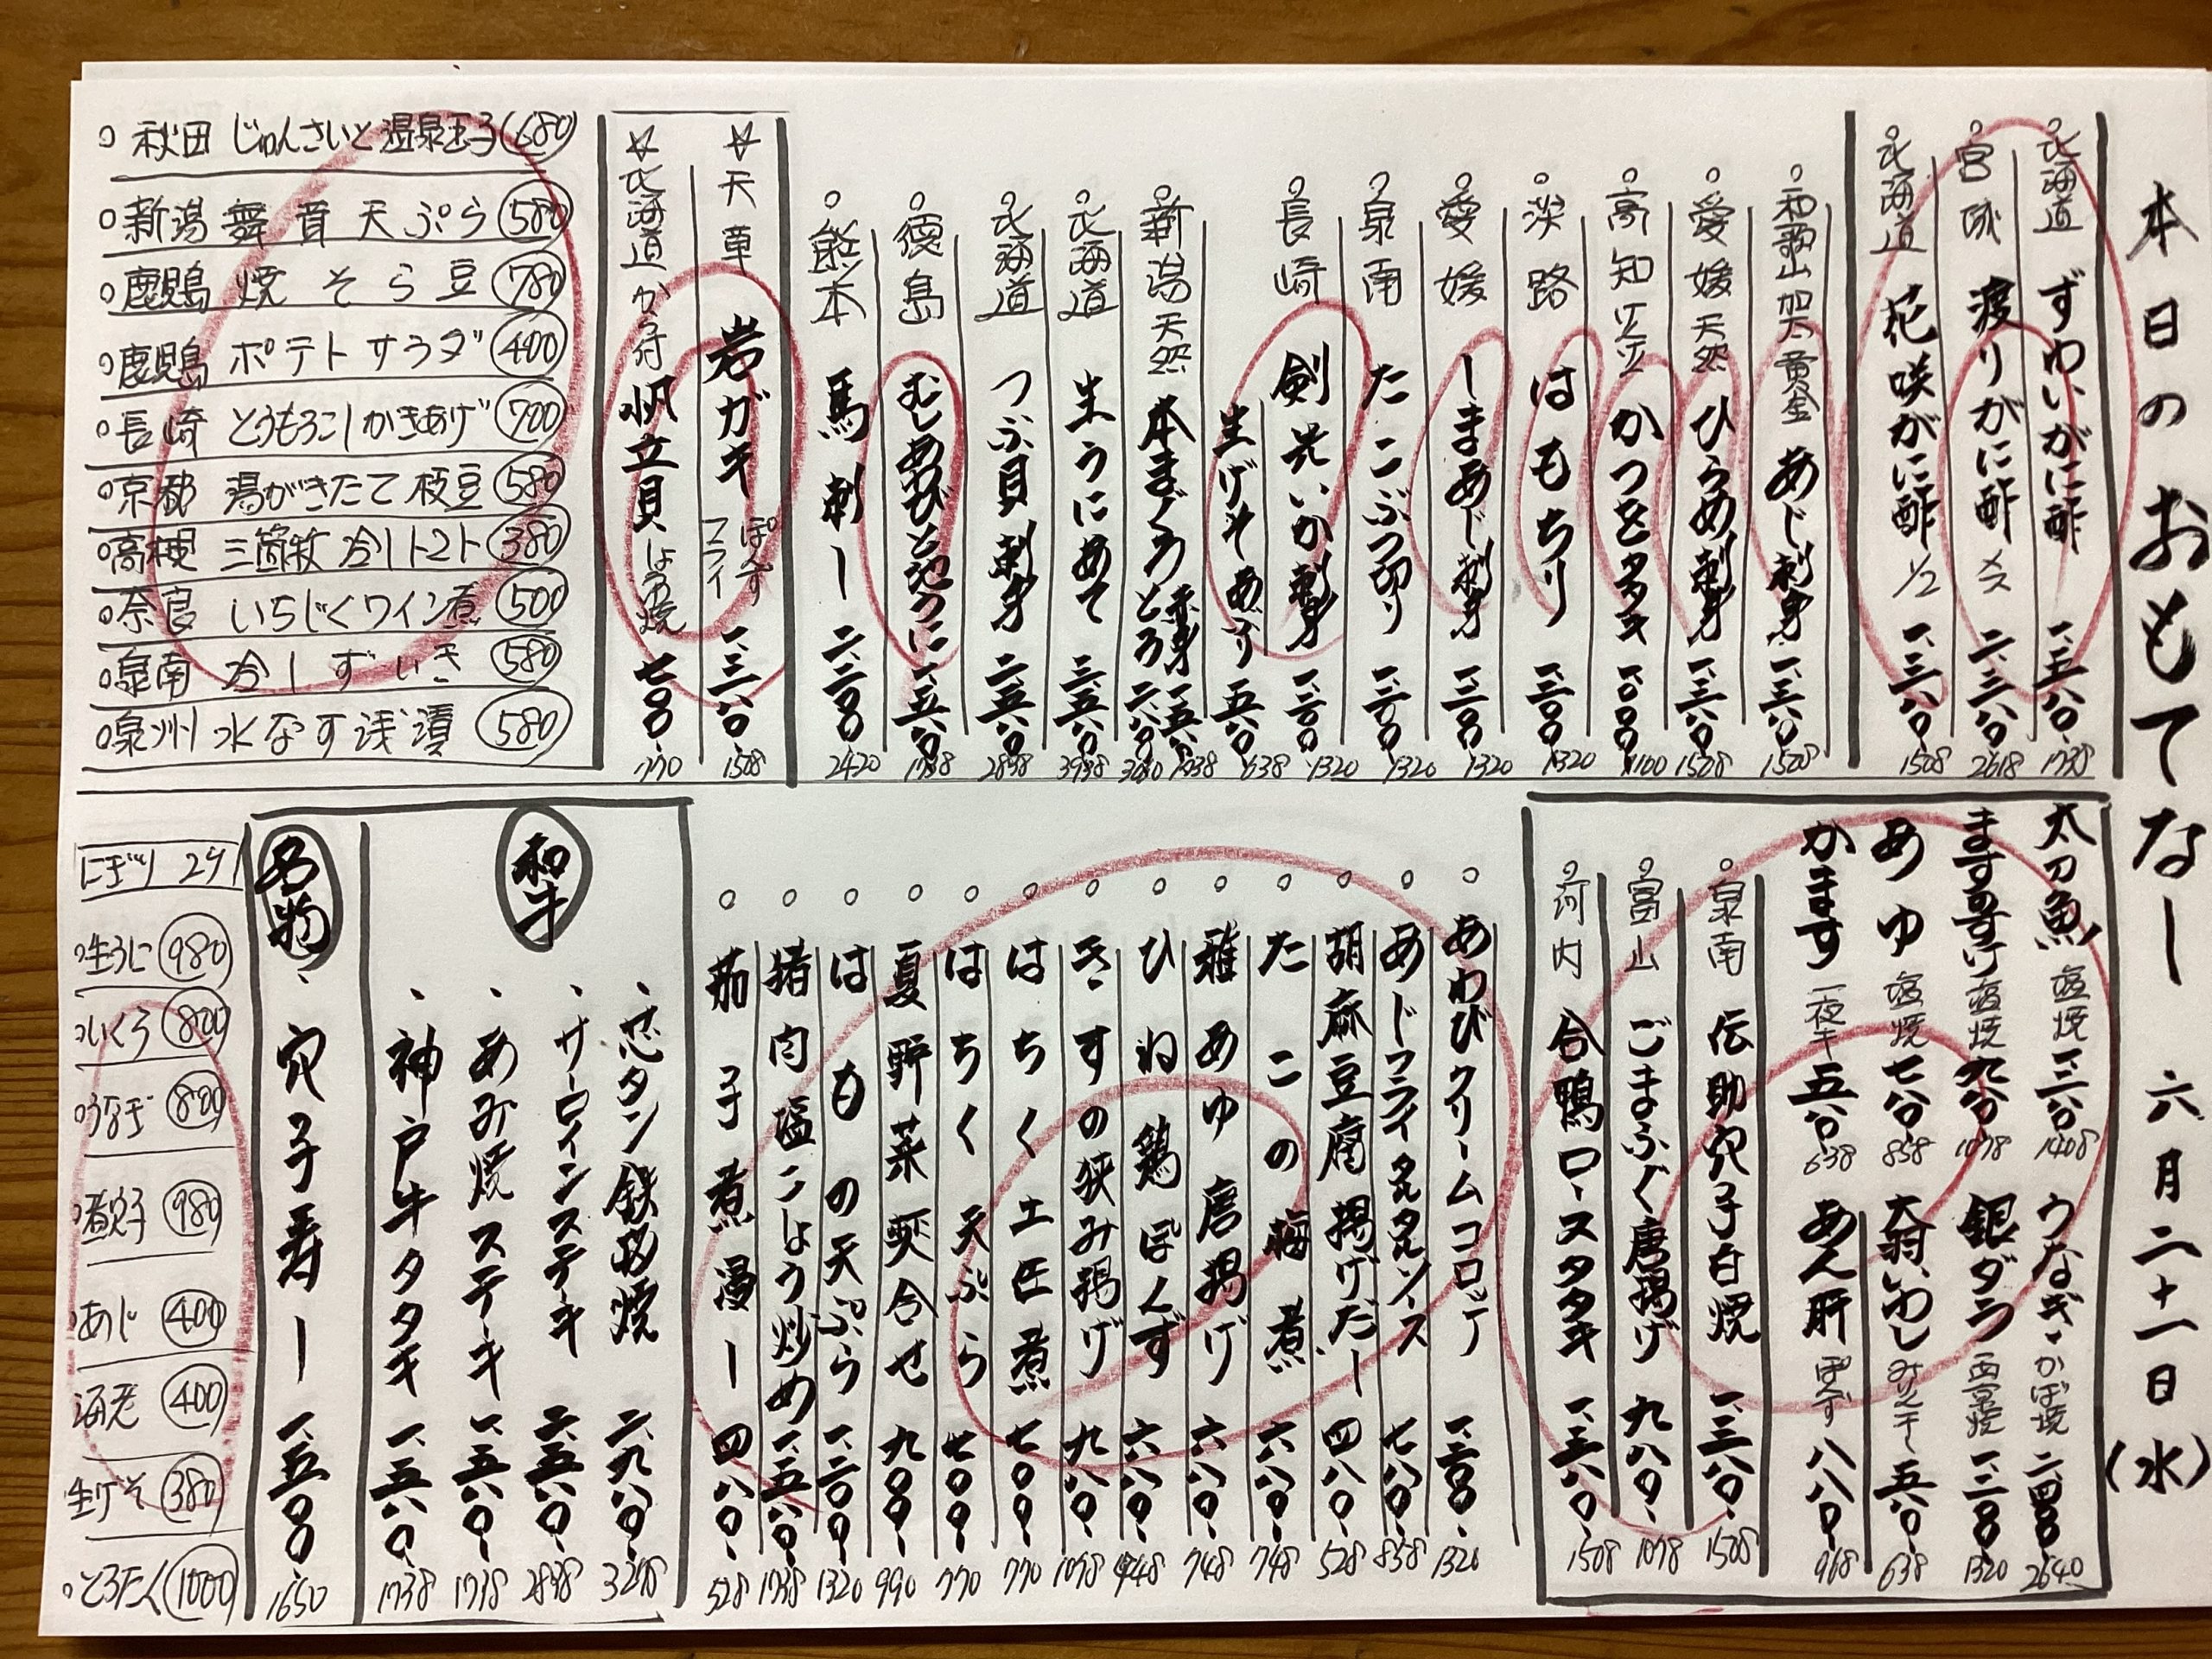 本日のおもてなし 六月二十一日(水)
北海道 ずわいがに酢 一、五八〇 1738
宮城 渡りがに酢 メス 二、三八〇 2618
北海道 花咲がに酢 1/2 一、三八〇 1508
和歌山加太 黄金 あじ刺身 一、三八〇 1508
愛媛 天然 ひらめ刺身 一、三八〇 1508
高知 かつをタタキ 一、〇〇〇 1100
淡路 はもちり 一、二〇〇 1320
愛媛 しまあじ刺身 一、二〇〇 1320
泉南 たこぶつ切り 一、二〇〇 1320
長崎 剣先いか刺身 一、二〇〇 1320
生げそあぶり 五八〇 638
新潟 天然 本まぐろ 赤身 一、五八〇 1738
とろ 二、八〇〇 3080
北海道 生うにあて 三、五八〇 3938
北海道 つぶ貝刺身 二、五八〇 2838
徳島 むしあわびと地うに 一、五八〇 1738
熊本 馬刺し 二、二〇〇 2420
☆天草 岩ガキ ぽんず フライ 一、三八〇 1508
☆北海道 から付 帆立貝 しょうゆ焼 七〇〇 770
秋田 じゅんさいと温泉玉子 680
新潟 舞茸天ぷら 580
鹿児島 焼そら豆 780
鹿児島 ポテトサラダ 400
長崎 とうもろこしかきあげ 700
京都 湯がきたて枝豆 580
高槻 三箇牧冷しトマト 380
奈良 いちじくワイン煮 500
泉南 冷しずいき 580
泉州 水なす浅漬 580
太刀魚 塩焼 一、二八〇 1408
うなぎ かば焼 二、四〇〇 2640
ます寄け 塩焼 九八〇 1078
銀ダラ 西京焼 一、二〇〇 1320
あゆ 塩焼 七八〇 858
大羽いわし みりん干し 五八〇 638
かます 一夜干 五八〇 638
あん肝 ぽんず 八八〇 968
泉南 伝助穴子白焼 一、三八〇 1508
富山 ごまふぐ唐揚げ 九八〇 1078
河内 合鴨ロースタタキ 一、三八〇 1508
あわびクリームコロッケ 一、二〇〇 1320
あじフライタルタルソース 七八〇 858
胡麻豆腐揚げだし 四八〇 528
たこの梅煮 六八〇 748
稚あゆ唐揚げ 六八〇 748
ひね鶏ぽんず 六八〇 748
きすの挟み揚げ 九八〇 1078
はちく土佐煮 七〇〇 770
はちく天ぷら 七〇〇 770
夏野菜煮合せ 九〇〇 990
はもの天ぷら 一、二〇〇 1320
猪肉塩こしょう炒め 一、五八〇 1738
茄子煮浸し 四八〇 528
和牛
芯タン鉄板焼 二、九八〇 3278
サーロインステーキ 二、五八〇 2838
あみ焼ステーキ 一、五八〇 1738
神戸牛タタキ 一、五八〇 1738
名物
穴子寿し 一、五〇〇 1650
にぎり 2ケ
生うに 980
いくら 800
うなぎ 800
煮穴子 980
あじ 400
海老 400
生げそ 380
とろたく 1000